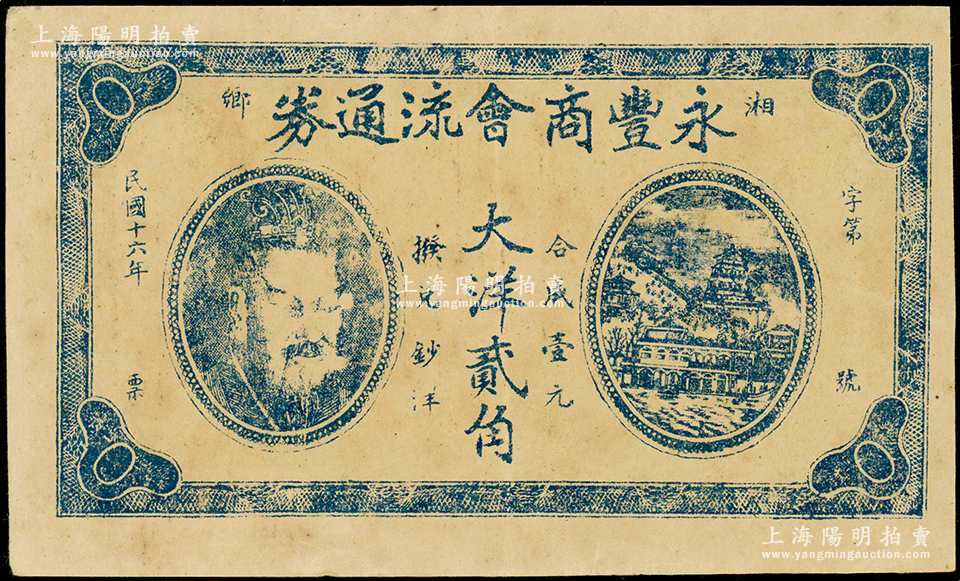 上海陽明拍賣
www.yangmingauction.com
湘鄉
永豐商會流通券
字第 號
合 壹元
大洋貳角
鈔洋
民國十六年 票
上海陽明拍賣
www.yangmingauction.com
上海陽明拍賣
www.yangmingauction.com